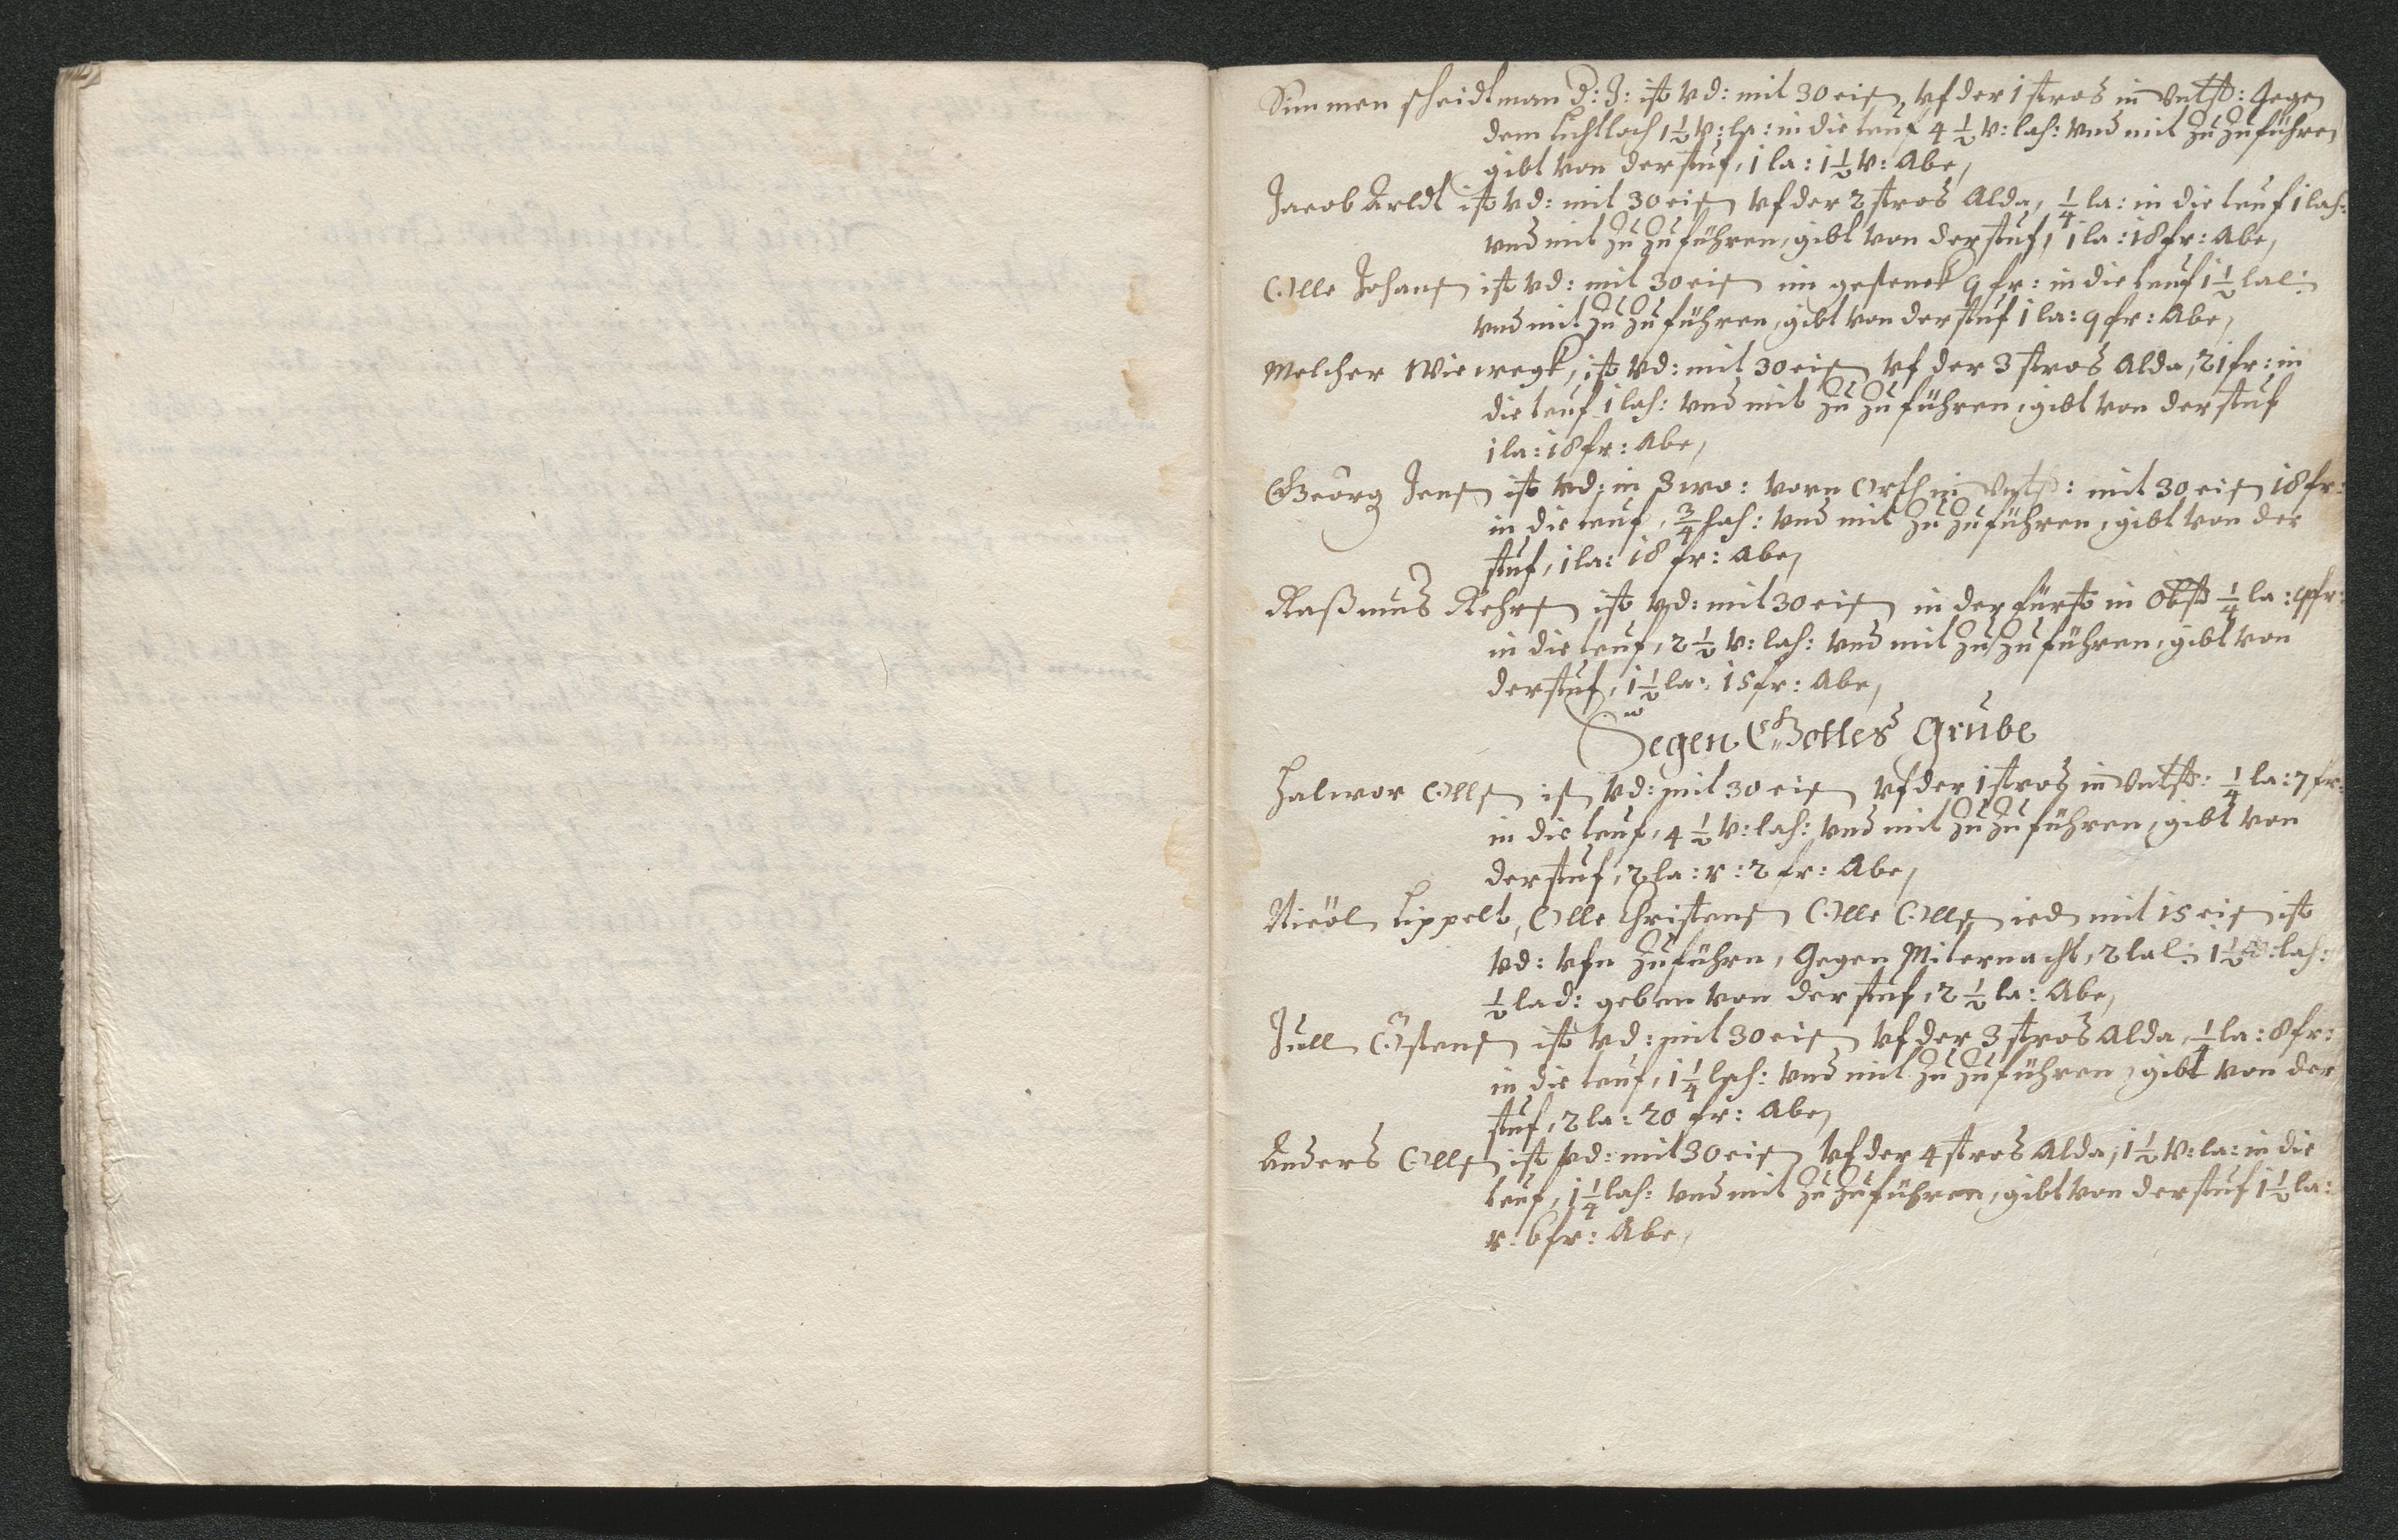 Simmen scheidtman D: J: ist vd: mit 30 eisn, vf der 1 stros in Untst: Gegen
dem lichtloch 1½ v: la: in die teuf 4½ v: lah: vnd mit zu zu führen
gibt von der stuf, 1 la: 1½ v: Abe,
Jacob Arldt ist vd: mit 30 eisn vf der 2 stros Alda, ¼ la: in die teuf 1 lah:
vnd mit zu zu führen, gibt von der stuf, 1 la: 18 fr: Abe,
Olle Johansn ist vd: mit 30 eisn im gesenck 9 fr: in die teuf 1½ lal:
vnd mit zu zu führen, gibt von der stuf 1 la: 9 fr: Abe,
Melcher Wiewegk, ist vd: mit 30 eisn vf der 3 stros Alda, 21 fr: in
die teuf 1 lah: vnd mit zu zu führen, gibt von der stuf
1 la: 18 fr: Abe,
Georg Jensn ist vd: in 3 wo: vorn Orth in Untst: mit 30 eisn 18 fr:
in die teuf, ¾ lah: vnd mit zu zu führen, gibt von der
stuf, 1 la: 18 fr: Abe,
Raßmus Rehrsn ist vd: mit 30 eisn in der fürst in Obst ¼ la: 9 fr:
in die teuf, 2½ v: lah: vnd mit zu zu führen, gibt von
der stuf, 1½ la: 15 fr: Abe,
Segen Gottes Grube
Halwor Ollsn ist vd: mit 30 eisn vf der 1 stros in Untst: ¼ la: 7 fr:
in die teuf, 4½ v: lah: vnd mit zu zu führen, gibt von
der stuf, 2 la: r: 2 fr: Abe,
Nicol Lippelt, Olle Christensn Olle Ollsn ied mit 15 eisn ist
vd: vfn zuführn, Gegen Miternacht, 2 lal: 1½ v: lah:
½ lad: geben von der stuf, 2½ la: Abe,
Jull Ostensn ist vd: mit 30 eisn vf der 3 stros Alda, ¼ la: 8 fr:
in die teuf, 1¼ lah: vnd mit zu zu führen, gibt von der
stuf, 2 la: 20 fr: Abe,
Anders Ollsn ist vd: mit 30 eisn vf der 4 stros Alda, 1½ v: la: in die
teuf, 1¼ lah: vnd mit zu zu führen, gibt von der stuf 1½ la:
r: 6 fr: Abe,